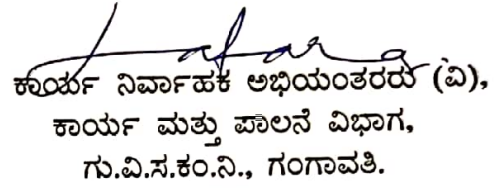 ಕಾರ್ಯ ನಿರ್ವಾಹಕ ಅಭಿಯಂತರರು (ವಿ),
ಕಾರ್ಯ ಮತ್ತು ಪಾಲನೆ ವಿಭಾಗ,
ಗು.ವಿ.ಸ.ಕಂ.ನಿ., ಗಂಗಾವತಿ.